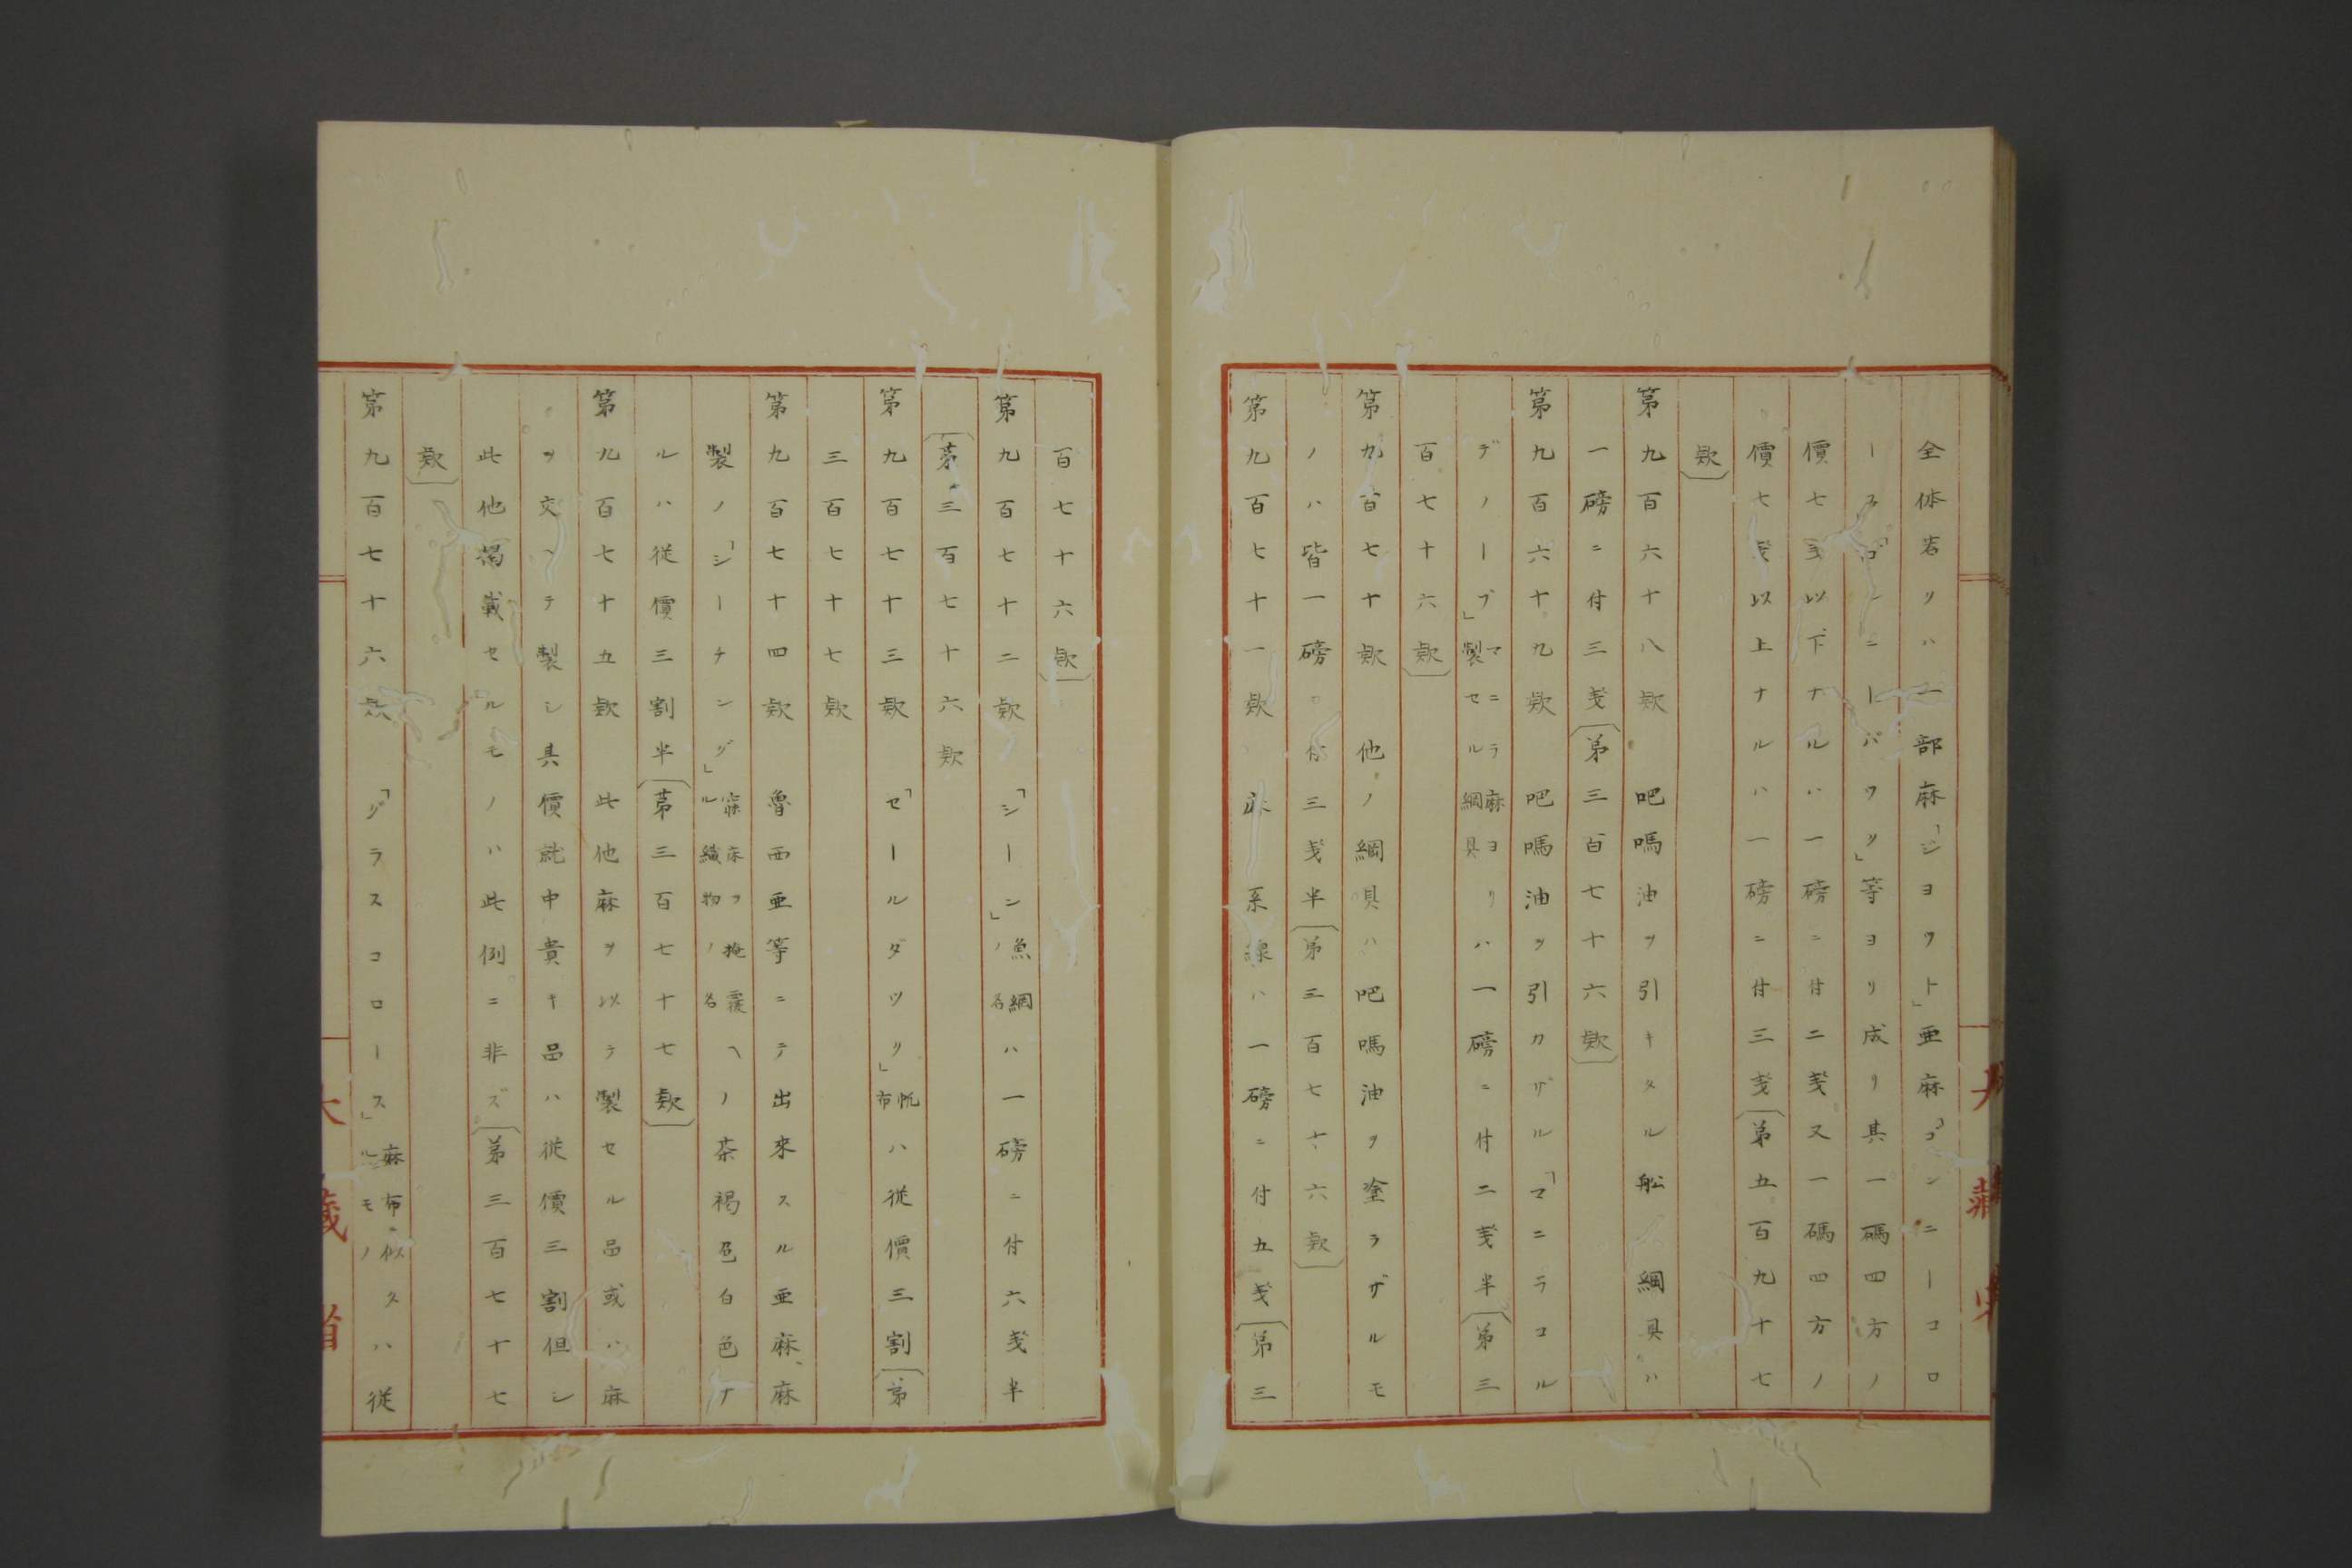 全体若クハ一部麻「ジヨウト」亜麻「ゴンニーコロ
ース」「ゴンニーバツグ」等ヨリ成リ其一碼四方ノ
價七戔以下ナルハ一磅ニ付二戔又一碼四方ノ
價七戔以上ナルハ一磅ニ付三戔〔第五百九十七
款〕
第九百六十八款　吧嗎油ヲ引キタル船ノ綱具ハ
一磅ニ付三戔〔第三百七十六款〕
第九百六十九款　吧嗎油ヲ引カザル「マニラコル
デノーブ」マニラ麻ヨリ製セル綱具ハ一磅ニ付二戔半〔第三
百七十六款〕
第九百七十款　他ノ綱具ハ吧嗎油ヲ塗ラザルモ
ノハ皆一磅ニ付三戔半〔第三百七十六款〕
第九百七十一款　麻糸線ハ一磅ニ付五戔〔第三
百七十六款〕
第九百七十二款　「シーン」魚網ノ名ハ一磅ニ付六戔半
〔第三百七十六款
第九百七十三款　「セールダツク」帆布ハ従價三割〔第
三百七十七款
第九百七十四款　魯西亜等ニテ出来スル亜麻、麻
製ノ「シーチング」寐床ヲ掩覆ヘル織物ノ名ノ茶褐色白色ナ
ルハ従價三割半〔第三百七十七款〕
第九百七十五款　此他麻ヲ以テ製セル品或ハ麻
ヲ交ヘテ製シ其價就中貴キ品ハ従價三割但シ
此他掲載セルモノハ此例ニ非ズ〔第三百七十七
款〕
第九百七十六款　「グラスコロース」麻布ニ似タルモノハ従
大藏省